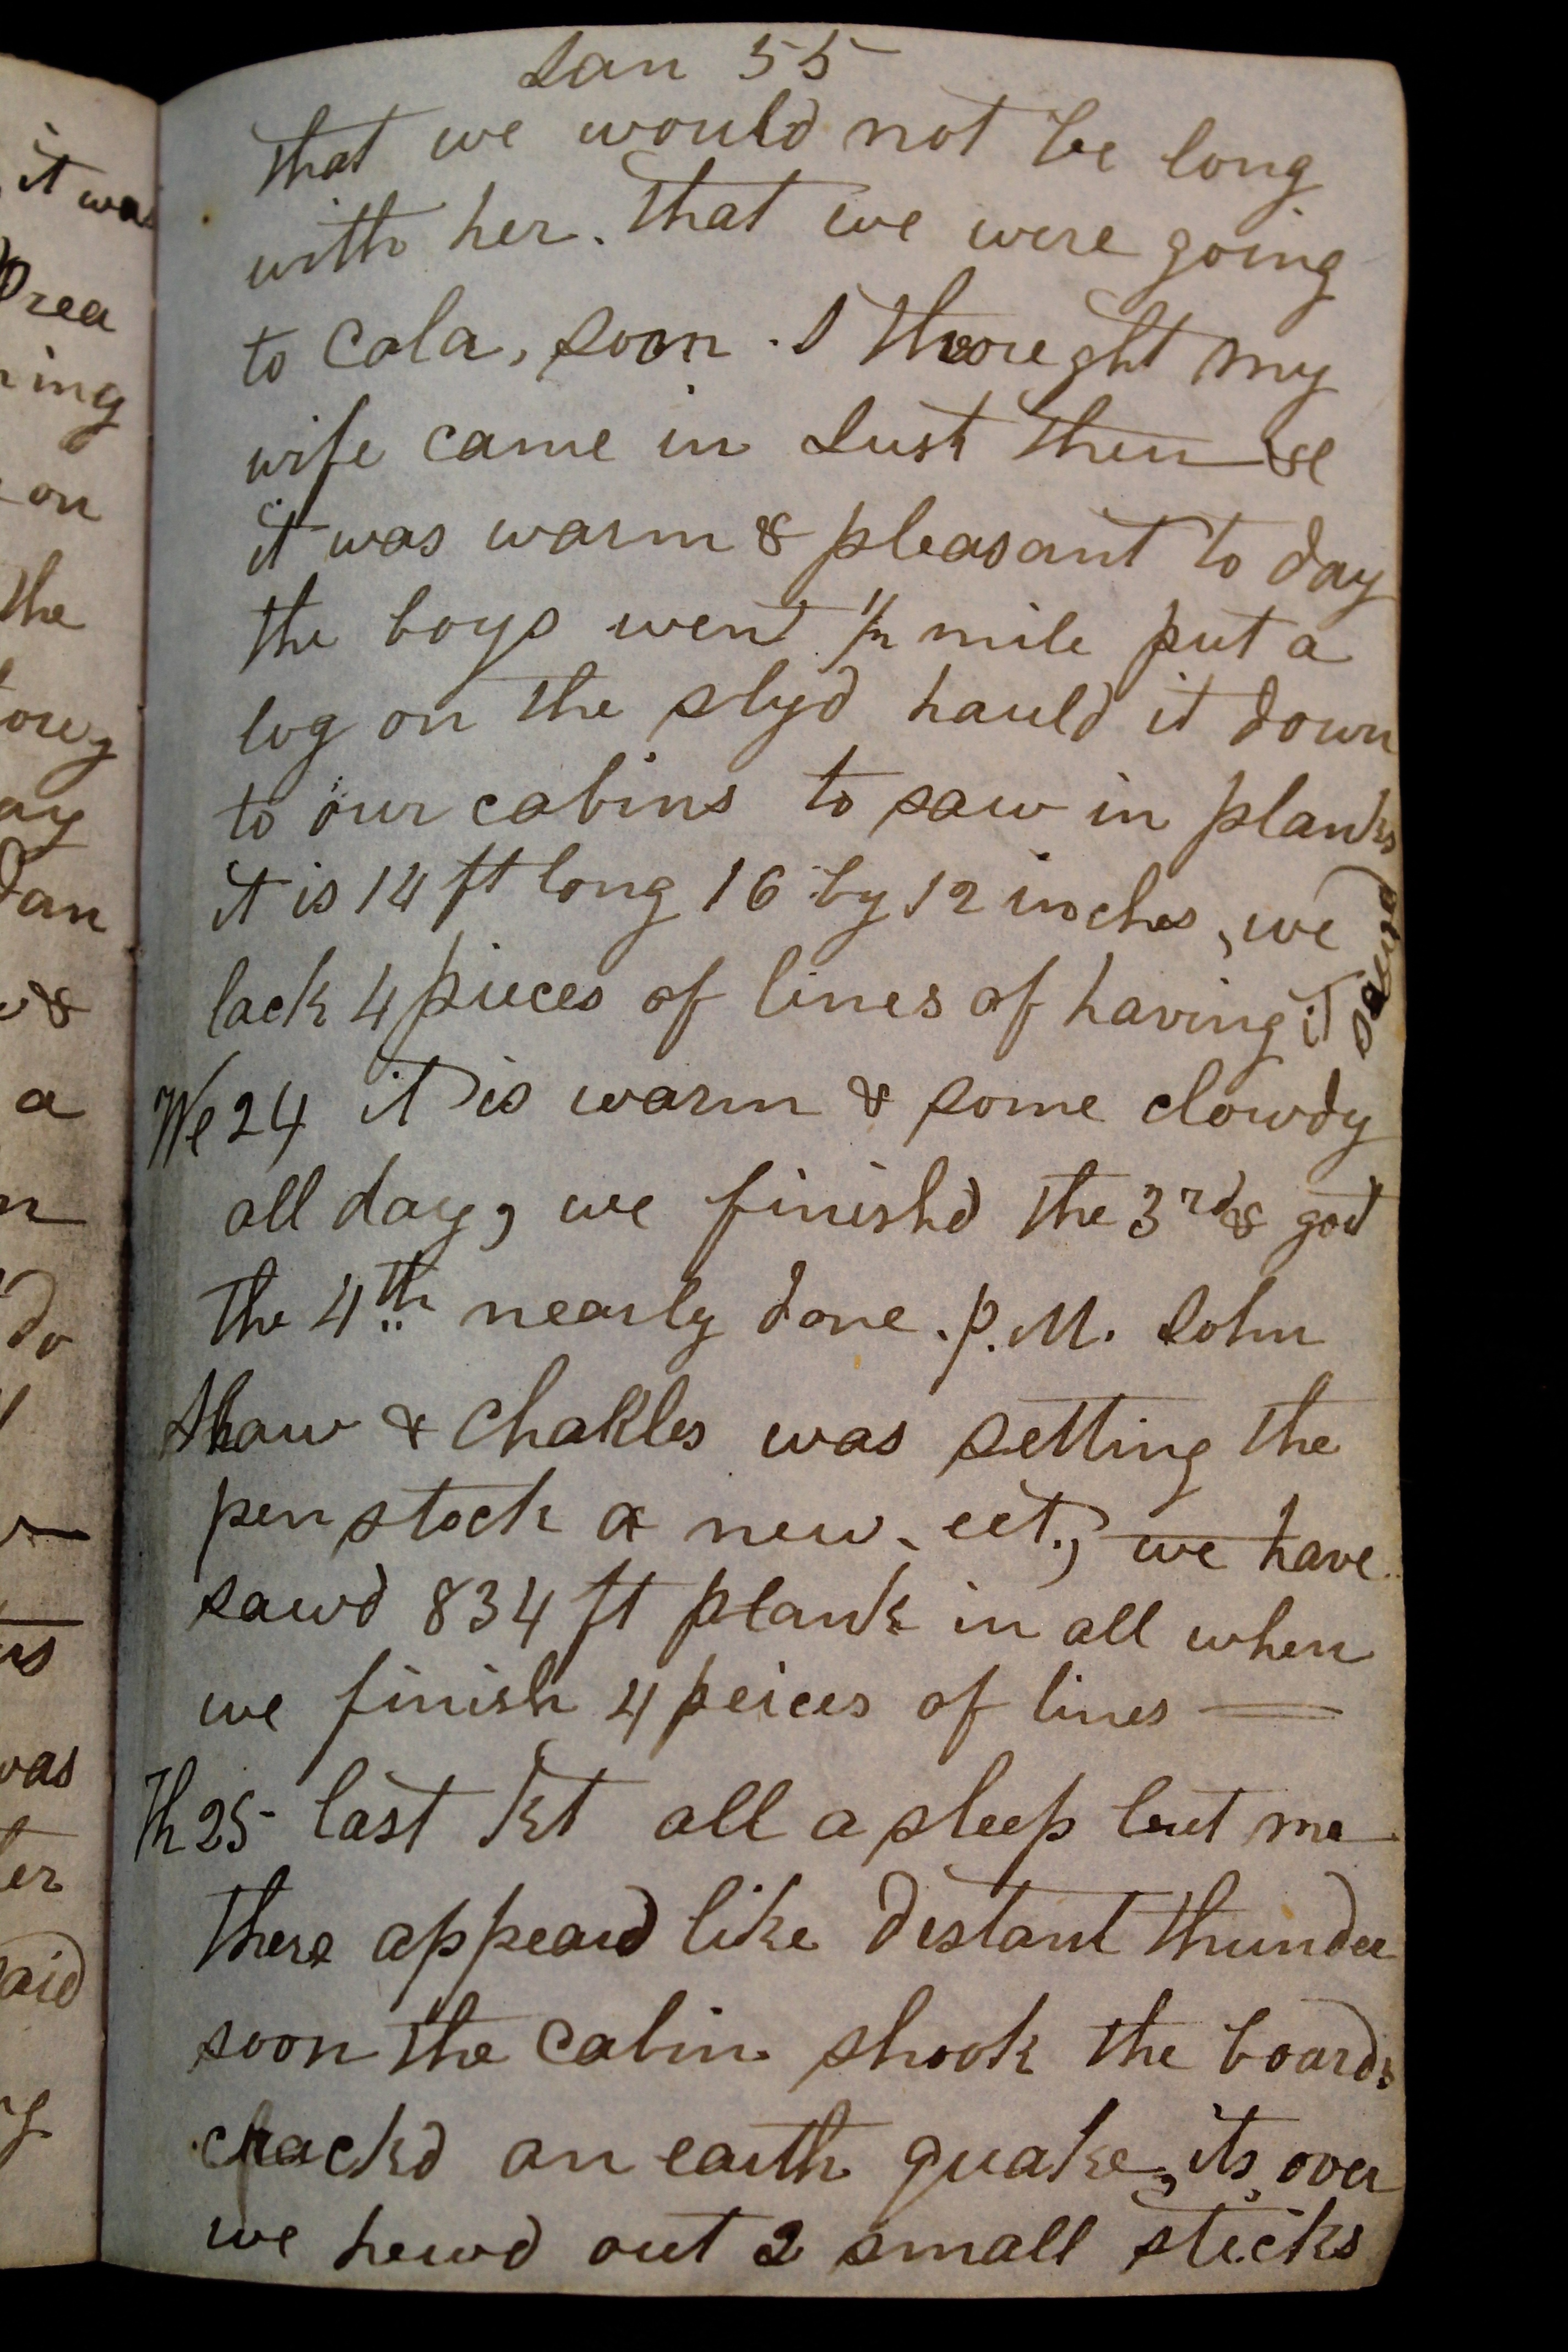 it was
rea
ing
on
the
ay
Jan
&
a
do
was
er
aid
Jan 55
that we would not be long
with her. that we were going
to Cola, soon. I thought my
wife came in Just then &c
it was warm & pleasant to day
the boys went 1/2 mile put a
log on the slyd hauld it down
to our cabins to saw in planks
it is 14 ft long 16 by 12 inches, we
lack 4 pieces of lines of having it sawd
We 24 it is warm & some clowdy
all day, we finishd the 3rd & got
the 4th nearly done. P.M. John
Shaw & Charles was setting the
pen stock a new. ect., we have
sawd 834 ft plank in all when
we finish 4 peices of lines —
Th 25 last all a sleep but me
there appeard like distant thunder
soon the cabin shook the boards
crackd an earth quake, its over
we hewd out 2 small sticks